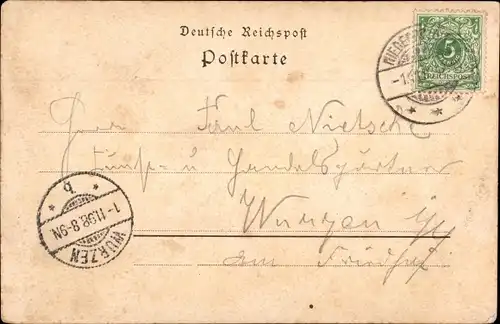 Deutsche Reichspost
Postkarte
5
REICHSPOST
Herr Paul Nietsche
Kunst- u Handelsgärtner
Wurzen i/S
am Friedhof
WURZEN
1-11.98. 8-9N.
b.